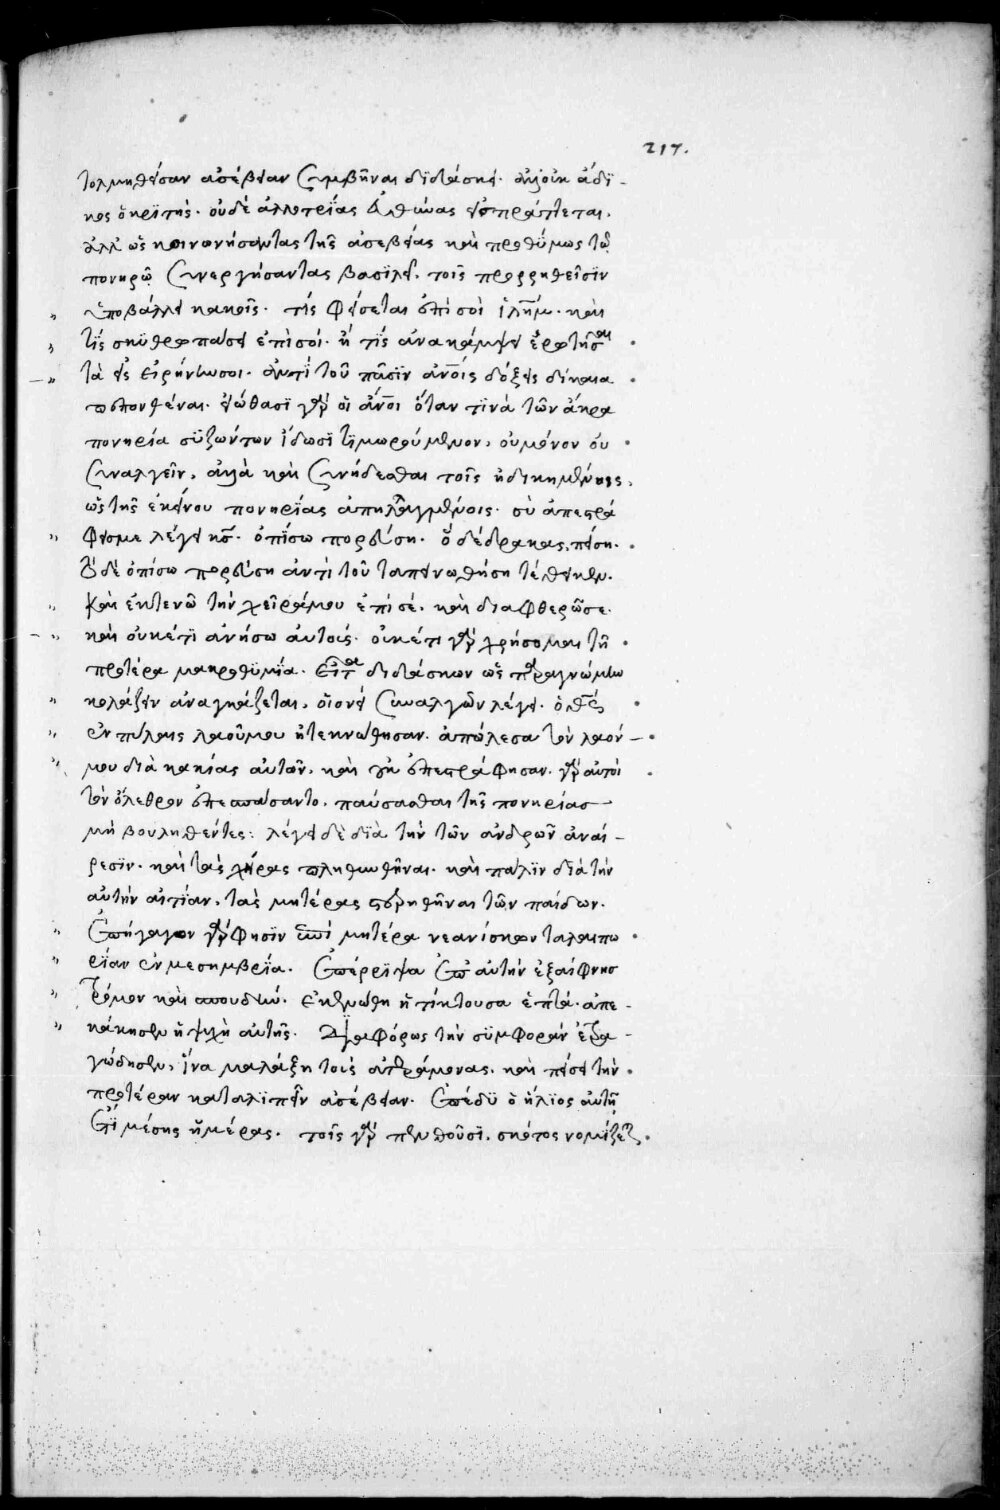 217.
τολμηθεῖσαν ἀσέβειαν συμβῆναι διδάσκει. ἀλλ οὐκ ἄδι-
κος ὁ κριτής. οὐδὲ ἀλλοτρίας εὐθύνας εἰσπράττεται.
ἀλλ ὡς κοινωνήσαντας τῆς ἀσεβείας καὶ προθύμως τῶ
πονηρῶ συνεργήσαντας βασιλεῖ. τοῖς προρρηθεῖσιν
ὑποβάλλει κακοῖς. τίς φείσεται ἐπὶ σοὶ ἱλημ. καὶ
τίς σκυθρωπάσει ἐπὶ σοί. ἢ τίς ἀνακάμψει ἐρωτῆσαι
τὰ εἰς εἰρήνην σοι. ἀντὶ τοῦ πᾶσιν ἀνοις δόξεις δίκαια
πεπονθέναι. εἰώθασι γὰρ οἱ ἄνοι ὅταν τινὰ τῶν ἄκρα
πονηρία συζώντων ἴδωσι τιμωρούμενον, οὐ μόνον οὐ
συναλγεῖν, ἀλλὰ καὶ συνήδεσθαι τοῖς ἠδικημένοις,
ὡς τῆς ἐκείνου πονηρίας ἀπηλλαγμένοις. σὺ ἀπεστρά
φεις με λέγει κς. ὀπίσω πορεύση. ὃ δέδρακας, πείση.
τὸ δὲ ὀπίσω πορεύση ἀντὶ τοῦ ταπεινωθήση τέθεικεν.
καὶ ἐκτενῶ τὴν χεῖρά μου ἐπὶ σέ. καὶ διαφθερῶ σε.
καὶ οὐκέτι ἀνήσω αὐτοὺς. οὐκέτι γὰρ χρήσομαι τῆ
προτέρα μακροθυμία. εἶτα διδάσκων ὡς παρὰ γνώμην
κολάζειν ἀναγκάζεται, οἱονεὶ συναλγῶν λέγει. ὁ θς
ἐν πύλαις λαοῦ μου ἠτεκνώθησαν. ἀπώλεσα τὸν λαόν
μου διὰ κακίας αὐτῶν. καὶ οὐκ ἐπεστράφησαν. γὰρ αὐτοὶ
τὸν ὄλεθρον ἐπεσπάσαντο. παύσασθαι τῆς πονηρίας
μὴ βουληθέντες: λέγει δὲ διὰ τὴν τῶν ἀνδρῶν ἀναί-
ρεσιν. καὶ τὰς χήρας πληθυνθῆναι. καὶ πάλιν διὰ τὴν
αὐτὴν αἰτίαν, τὰς μητέρας στερηθῆναι τῶν παίδων.
ἐπήγαγον γάρ φησιν ἐπὶ μητέρα νεανίσκων ταλαιπω
ρίαν ἐν μεσημβρία. ἐπέρριψα ἐπ αὐτὴν ἐξαίφνης
τρόμον καὶ σπουδήν. ἐκενώθη ἡ τίκτουσα ἑπτά. ἀπε-
κάκησεν ἡ ψυχὴ αὐτῆς. διαφόρως τὴν συμφορὰν ἐτρα-
γώδησεν, ἵνα μαλάξη τοὺς ἀτεράμονας. καὶ πείσει τὴν
προτέραν καταλιπεῖν ἀσέβειαν. ἐπέδυ ὁ ἥλιος αὐτῆ
ἔτι μέσης ἡμέρας. τοῖς γὰρ πενθοῦσι. σκότος νομίζετ